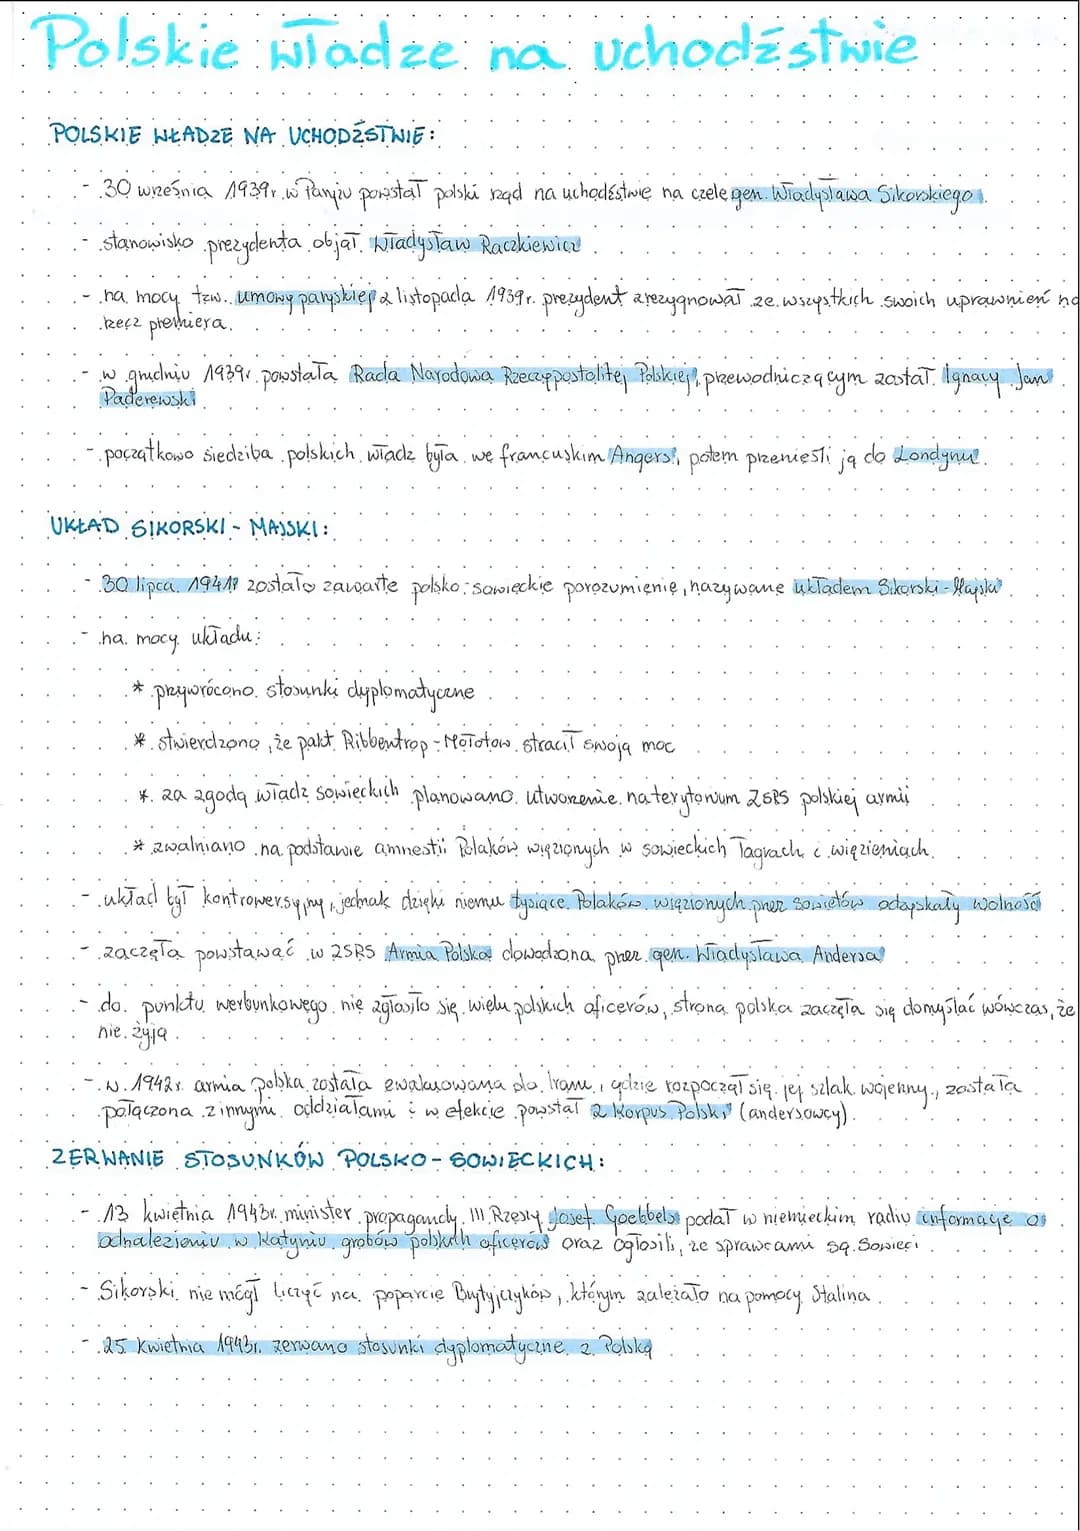 Polskie władze na uchodźstwie
POLSKIE WŁADZE NA UCHODŹSTWIE:
- 30 września 1939r. w Paryżu powstał polski rząd na uchodźstwie na czele gen. Władysława Sikorskiego.
- stanowisko prezydenta objął Władysław Raczkiewicz
- na mocy tzw. umowy paryskiej z listopada 1939r. prezydent zrezygnował ze wszystkich swoich uprawnień na
rzecz premiera.
- w grudniu 1939r. powstała Rada Narodowa Rzeczypospolitej Polskiej, przewodniczącym został Ignacy Jan
Paderewski
- początkowo siedziba polskich władz była we francuskim Angers, potem przenieśli ją do Londynu.
UKŁAD SIKORSKI - MAJSKI:
- 30 lipca 1941r zostało zawarte polsko-sowieckie porozumienie, nazywane układem Sikorski-Majski.
- na mocy układu:
* przywrócono stosunki dyplomatyczne
* stwierdzono, że pakt Ribbentrop-Mołotow stracił swoją moc
* za zgodą władz sowieckich planowano utworzenie na terytorium ZSRS polskiej armii
* zwalniano na podstawie amnestii Polaków więzionych w sowieckich łagrach i więzieniach.
- układ był kontrowersyjny, jednak dzięki niemu tysiące Polaków więzionych przez Sowietów odzyskały wolność
- zaczęła powstawać w ZSRS Armia Polska dowodzona przez gen. Władysława Andersa
- do punktu werbunkowego nie zgłosiło się wielu polskich oficerów, strona polska zaczęła się domyślać wówczas, że
nie żyją.
- w 1942r. armia polska została ewakuowana do Iranu, gdzie rozpoczął się jej szlak wojenny, została
połączona z innymi oddziałami i w efekcie powstał 2 Korpus Polski (andersowcy).
ZERWANIE STOSUNKÓW POLSKO-SOWIECKICH:
- 13 kwietnia 1943r. minister propagandy III Rzeszy Josef Goebbels podał w niemieckim radiu informacje o
odnalezieniu w Katyniu grobów polskich oficerów oraz ogłosili, że sprawcami są Sowieci.
- Sikorski nie mógł liczyć na poparcie Brytyjczyków, którym zależało na pomocy Stalina.
- 25 kwietnia 1943r. zerwano stosunki dyplomatyczne z Polską